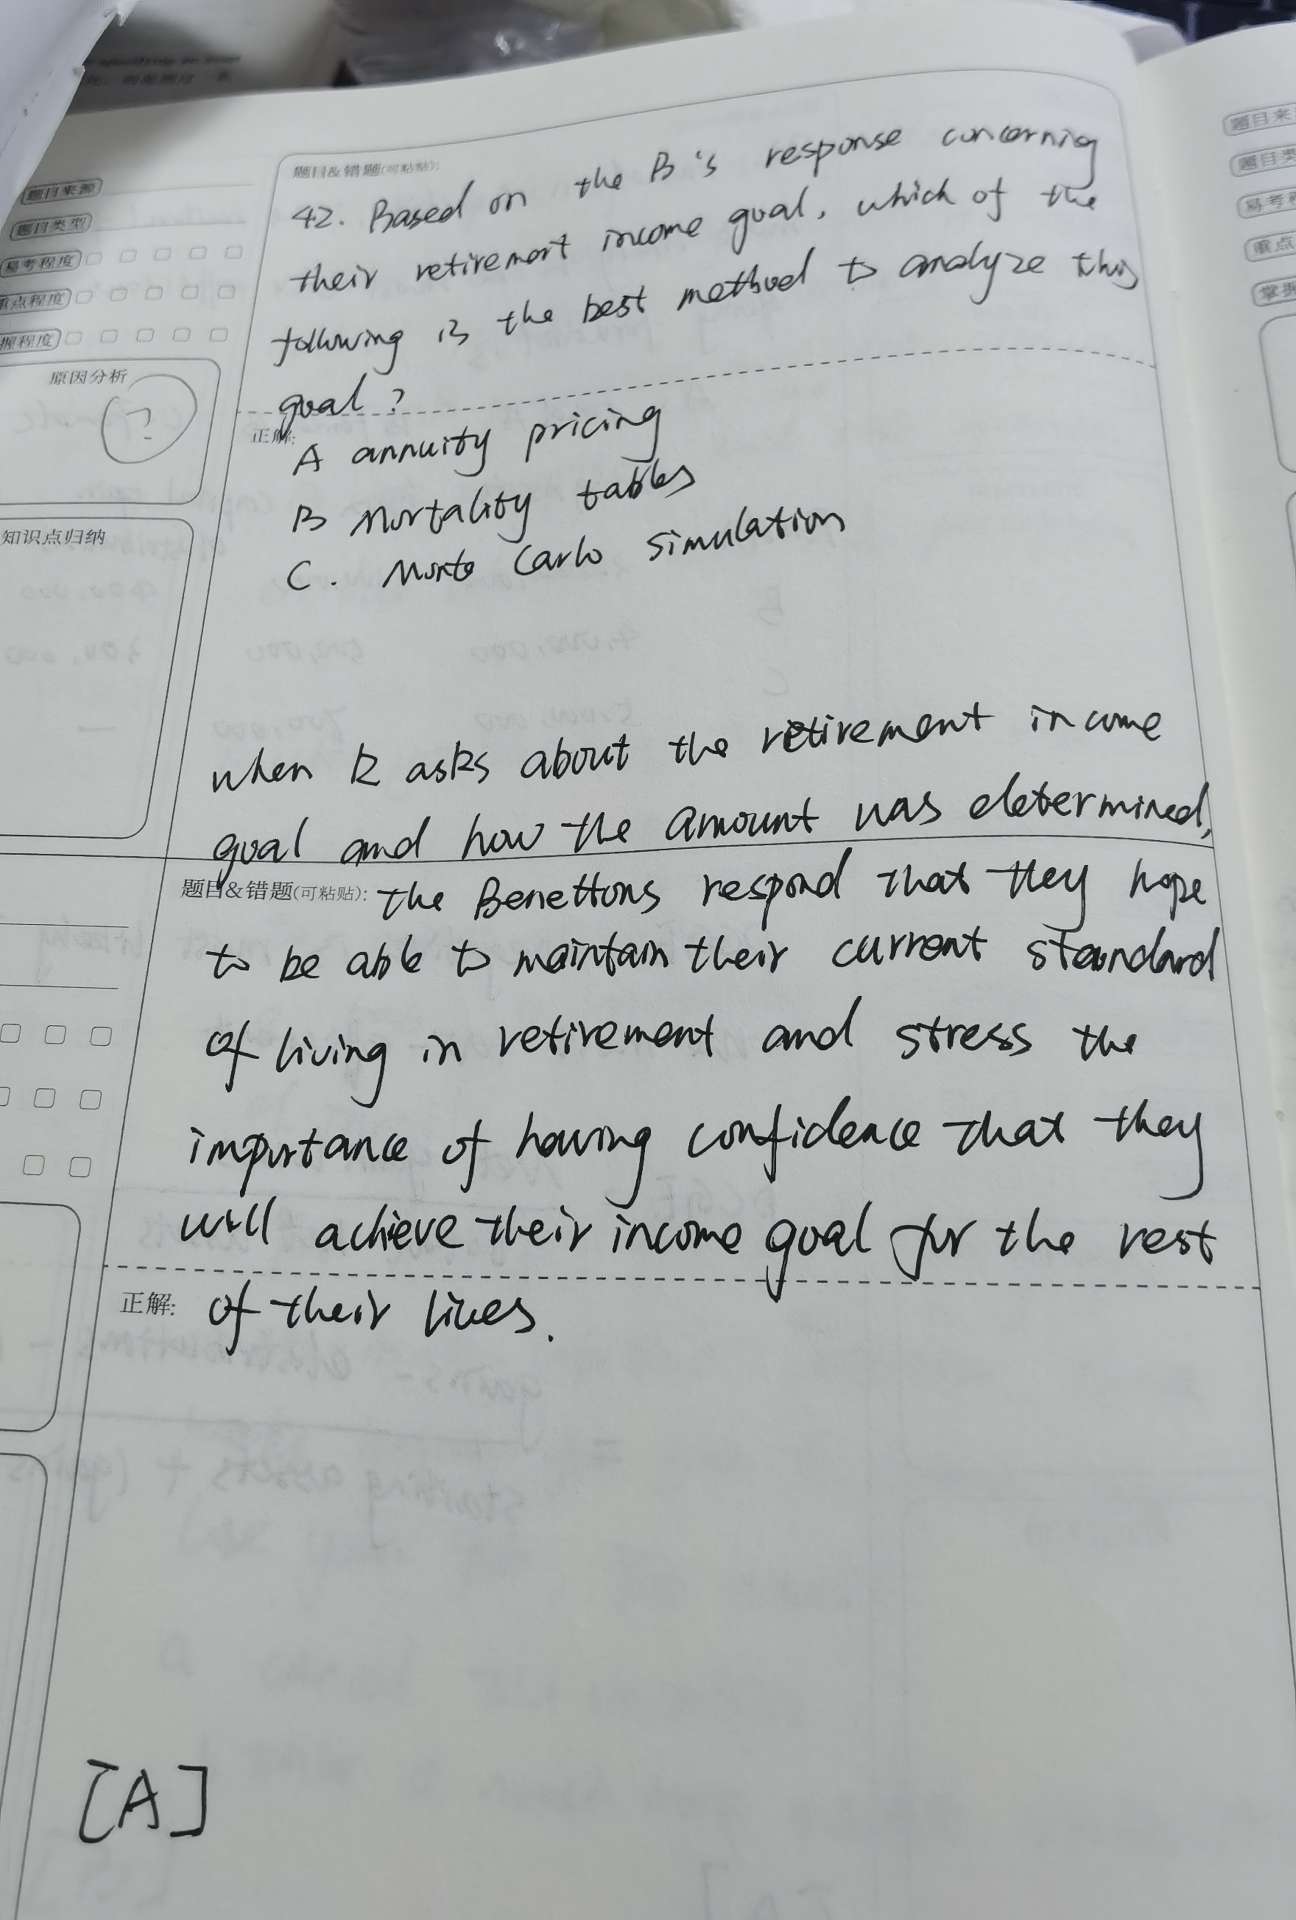 题目来源
题目类型
易考程度
重点程度
握程度
原因分析
?
知识点归纳
题目&错题(可粘贴):
42. Based on the B's response concerning
their retirement income goal, which of the
following is the best method to analyze this
goal?
正解:
A annuity pricing
B Mortality tables
C. Monte Carlo simulation
when k asks about the retirement income
goal and how the amount was determined,
题目&错题(可粘贴): the Benettons respond that they hope
to be able to maintain their current standard
of living in retirement and stress the
importance of having confidence that they
will achieve their income goal for the rest
正解: of their lives.
[A]
题目来
题目类
易考程
重点
掌握